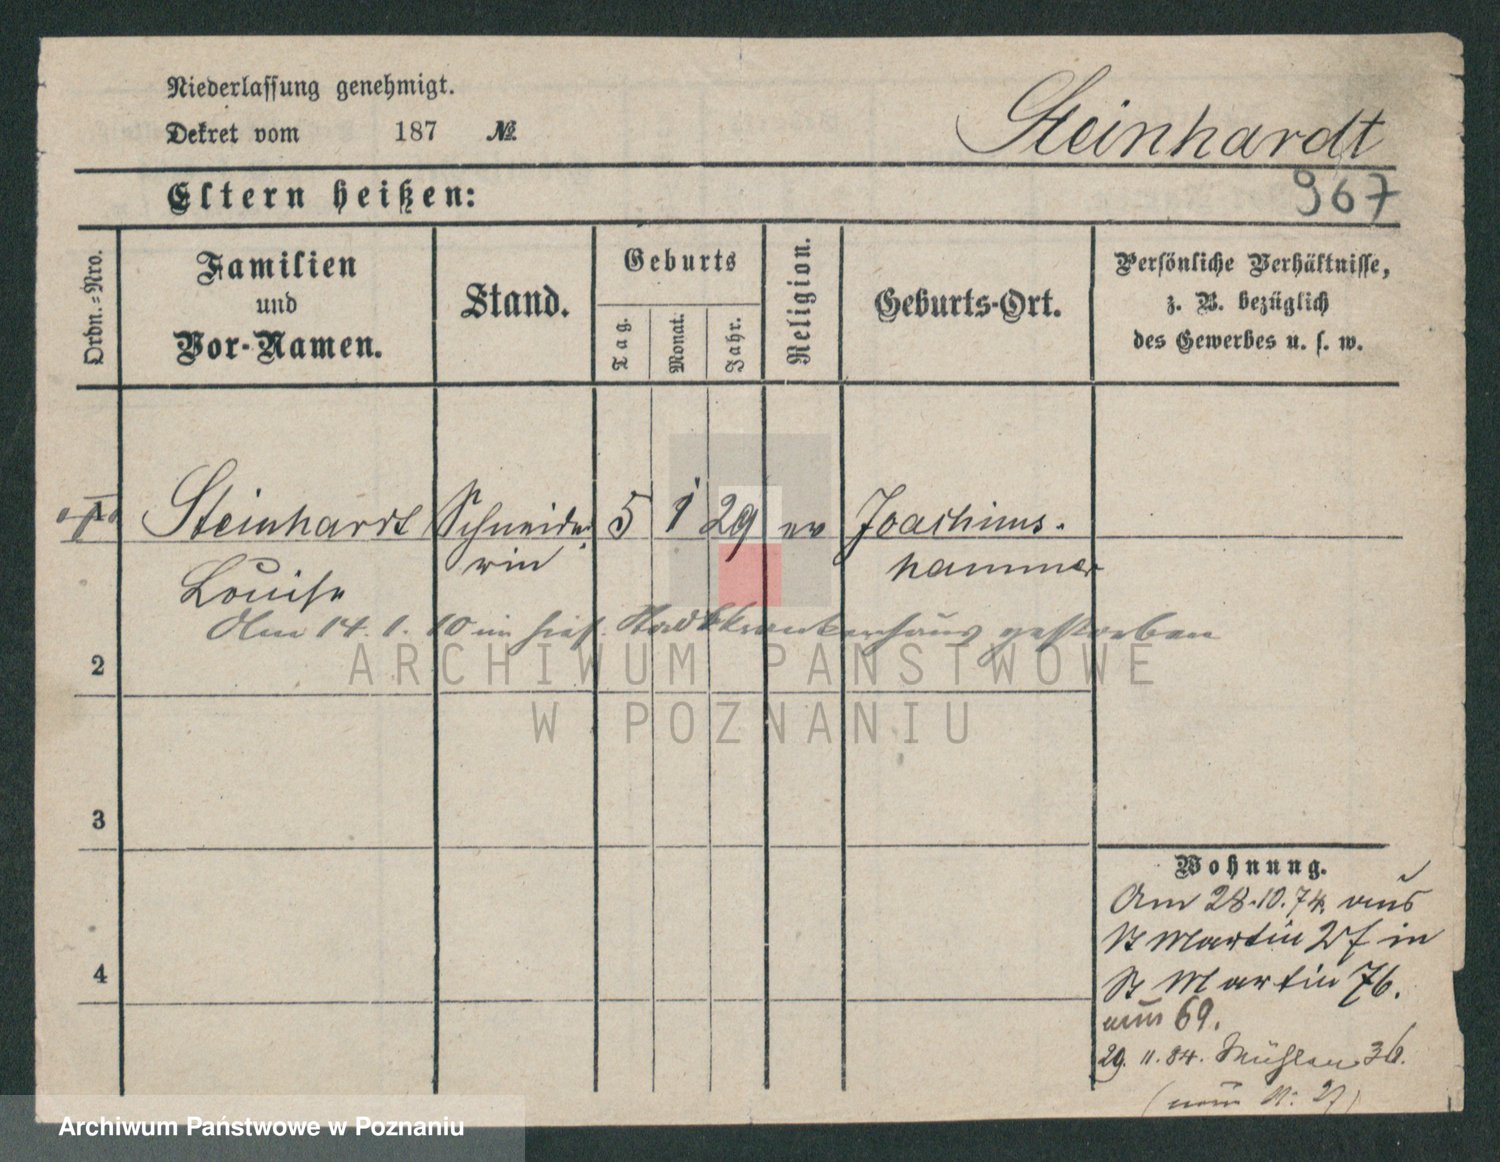 Niederlassung genehmigt.
Dekret vom 187 №
Steinhardt
967
Eltern heißen:
Ordn.-Nro.
Familien
und
Vor-Namen.
Stand.
Geburts
Tag.
Monat.
Jahr.
Religion.
Geburts-Ort.
Persönliche Verhältnisse,
z. B. bezüglich
des Gewerbes u. s. w.
1 Steinhardt Schneide 5 1 29 ev Joachims-
Louise rin hammer
Am 14. 1. 10 im hies. Stadtkrankenhaus gestorben
2
3
4
Wohnung.
Am 28.10.74. aus
St Martin in
St Martin 76.
nun 69.
29. 11. 84. Mühlen 36.
(neue N: 27)
ARCHIWUM PAŃSTWOWE
W POZNANIU
Archiwum Państwowe w Poznaniu